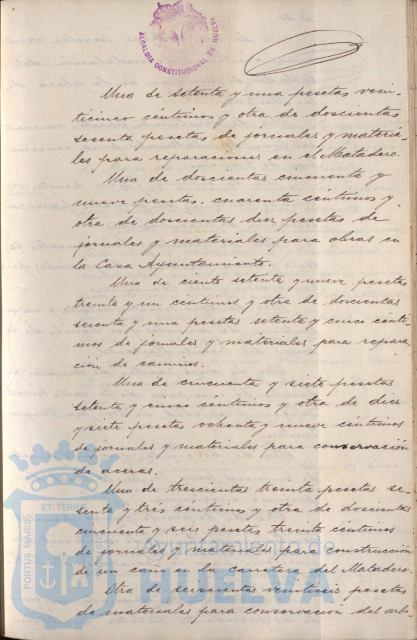 ALCALDÍA CONSTITUCIONAL DE HUELVA
Una de setenta y una pesetas vein-
ticinco céntimos y otra de doscientas
sesenta pesetas de jornales y materia-
les para reparaciones en el Matadero.
Una de doscientas cincuenta y
nueve pesetas cuarenta céntimos y
otra de doscientas diez pesetas de
jornales y materiales para obras en
la Casa Ayuntamiento.
Una de ciento setenta y nueve pesetas
treinta y un céntimos y otra de doscientas
sesenta y una pesetas setenta y cinco cénti-
mos de jornales y materiales para repara-
ción de caminos.
Una de cincuenta y siete pesetas
setenta y cinco céntimos y otra de diez
y siete pesetas ochenta y nueve céntimos
de jornales y materiales para conservación
de aceras.
Una de trescientas treinta pesetas se-
senta y tres céntimos y otra de doscientas
cincuenta y seis pesetas treinta céntimos
de jornales y materiales para construcción
de un caño en la carretera del Matadero.
Otra de seiscientas veintiseis pesetas
de materiales para conservación del arbo-
PORTUS MARIS ET TERR
Ayuntamiento de
HUELVA